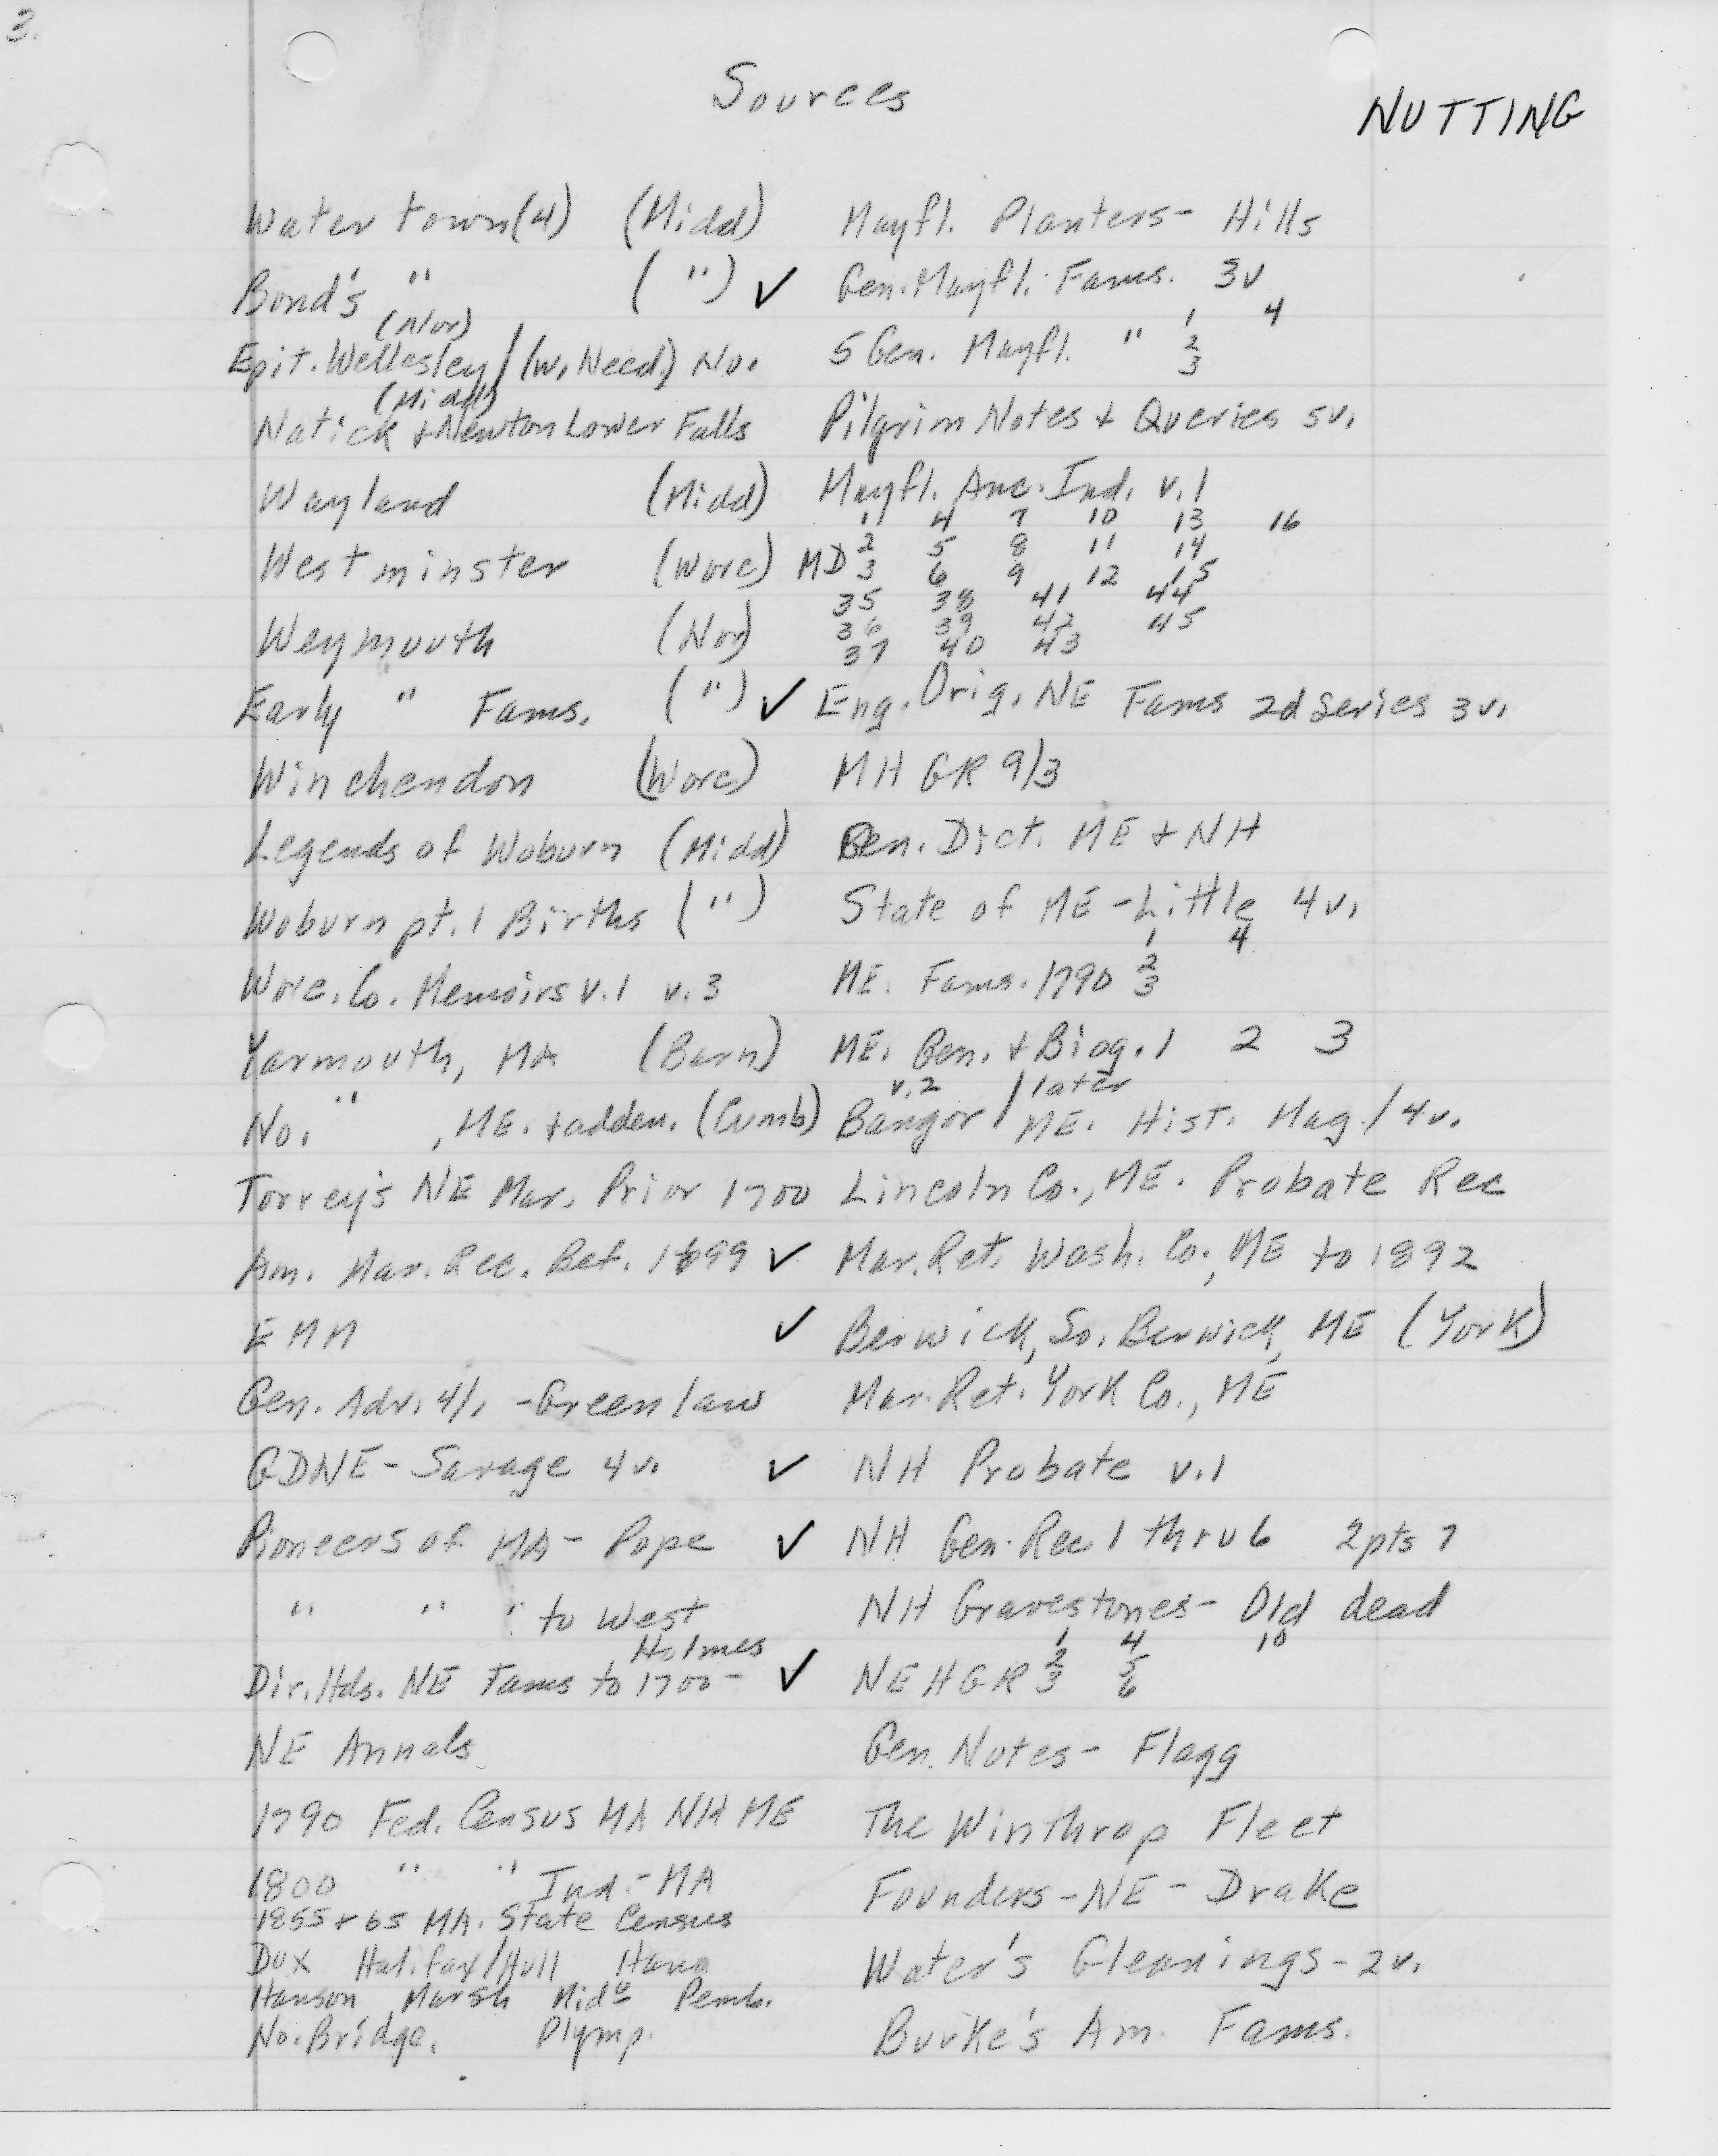 3.
Sources
NUTTING
Watertown (4) (Midd)
Bond's " (") ✓
(Nor)
Epit. Wellesley / (W. Need.) No.
(Midd)
Natick + Newton Lower Falls
Wayland (Midd)
Westminster (Worc)
Weymouth (Nor)
Early " Fams. (") ✓
Winchendon (Worc)
Legends of Woburn (Midd)
Woburn pt. 1 Births (")
Worc. Co. Memoirs v.1 v.3
Yarmouth, MA (Barn)
No. " , ME. + adden. (Cumb)
Torrey's NE Mar. Prior 1700
Am. Mar. Rec. Bef. 1699 ✓
EMM ✓
Gen. Adv. 4/1 - Greenlaw
GDNE - Savage 4v. ✓
Pioneers of MA - Pope ✓
" " " to West
Holmes
Dir. Hds. NE Fams to 1700 - ✓
NE Annals
1790 Fed. Census MA NH ME
1800 " " Ind. - MA
1855 + 65 MA. State Census
Dux Halifax/Hull Hano
Hanson Marsh Mido Pemb.
No. Bridge. Plymp.
Mayfl. Planters - Hills
Gen. Mayfl. Fams. 3v
1 4
5 Gen. Mayfl. " 2
3
Pilgrim Notes + Queries 5v.
Mayfl. Anc. Ind. v.1
1 4 7 10 13 16
2 5 8 11 14
MD 3 6 9 12 15
35 38 41 44
36 39 42 45
37 40 43
Eng. Orig. NE Fams 2d Series 3v.
MHGR 9/3
Gen. Dict. ME + NH
State of ME - Little 4v.
1 4
2
ME. Fams. 1790 3
ME. Gen. + Biog. 1 2 3
v.2 later
Bangor / ME. Hist. Mag. / 4v.
Lincoln Co., ME. Probate Rec
Mar. Ret. Wash. Co., ME to 1892
Berwick, So. Berwick, ME (York)
Mar. Ret. York Co., ME
NH Probate v.1
NH Gen. Rec 1 thru 6 2pts 7
NH Gravestones - Old dead
1 4 10
NEHGR 2 5
3 6
Gen. Notes - Flagg
The Winthrop Fleet
Founders - NE - Drake
Water's Gleanings - 2v.
Burke's Am. Fams.